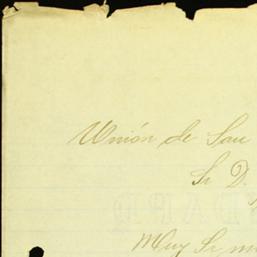 Unión de San
Sr D.
Muy Sr m